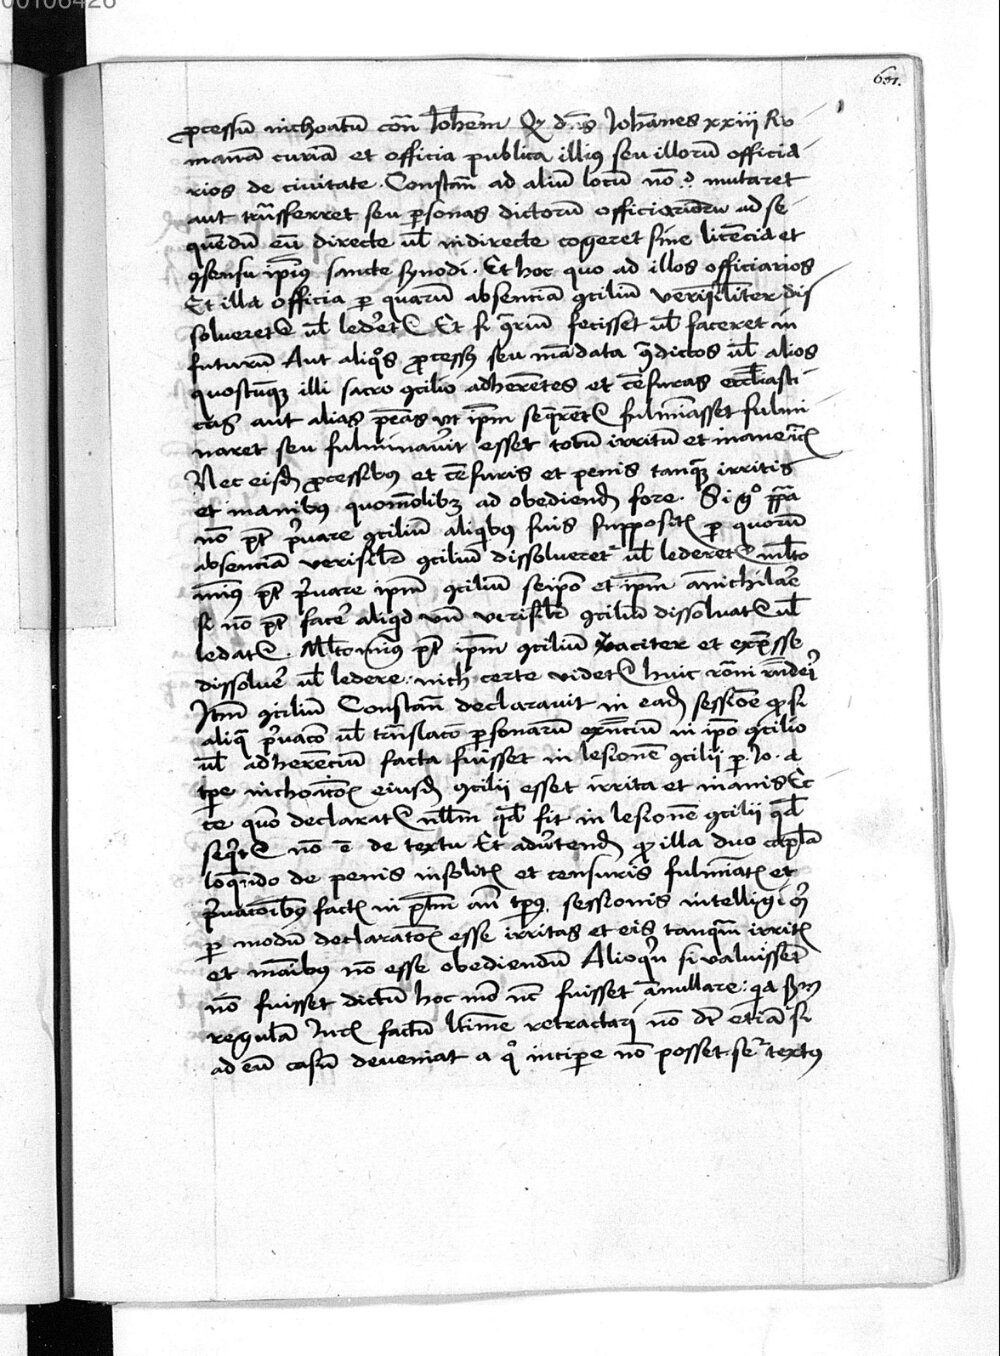 00106426
631.
processum inchoatum contra Iohannem Q dominus Iohannes xxiii Ro
manam curiam et officia publica illius seu illorum officia
rios de civitate Constan ad alium locum non mutaret
aut transferret seu personas dictorum officiariorum ad se
quendum eum directe vel indirecte cogeret sine licencia et
consensu ipsius sancte synodi. Et hoc quo ad illos officiarios
Et illa officia per quarum absentiam concilium verisimiliter dis
solveretur vel lederetur Et si contrarium fecisset vel faceret in
futurum Aut aliquos processus seu mandata contra dictos vel alios
quoscunque illi sacro concilio adherentes et censuras ecclesiasti
cas aut alias penas ut ipsum sequerentur fulminasset fulmi
naret seu fulminaverit esset totum irritum et inane
Nec eisdem processibus et censuris et penis tanquam irritis
et inanibus quomodolibet ad obediendum fore. Si ergo papa
non potest privare concilium aliquibus suis suppositis per quorum
absenciam verisimiliter concilium dissolveretur vel lederetur multo
minus potest privare ipsum concilium seipso et ipsum annichilare
si non potest facere aliquid unde verisimiliter concilium dissolvatur vel
ledatur. Multominus potest ipsum concilium et expresse
dissolvere vel ledere: nichil certe videtur huic rationi responderi
Item concilium Constan declaravit in eadem sessione quod si
aliqua privatio vel translatio personarum existencium in ipso concilio
vel adherencium facta fuisset in lesionem concilii per Io. a
tempore inchoationis eiusdem concilii esset irrita et inanis Ec
ce quomodo declaratur nullum quod fit in lesionem concilii quod
sequitur non est de textu Et advertendum quod illa duo capitula
loquendo de penis insolitis et censuris fulminatis et
privationibus factis in preteritum ante tempus sessionis intelligitur
per modum declarationis esse irritas et eis tanquam irritis
et inanibus non esse obediendum Alioquin si valuissent
non fuisset dictum hoc modo nec fuisset annullare: quia secundum
regulam Iuris factum legitime retractari non debet etiam si
ad eum casum deveniat a quo incipere non posset. textus